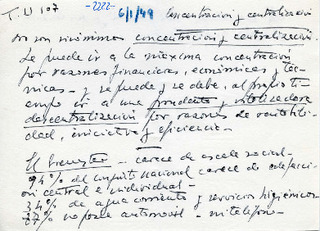 T.U 107 -2222- 6/1/49 Concentración y centralización
No son sinónimos concentración y centralización.
Se puede ir a la máxima concentración
por razones financieras, económicas y téc-
nicas - y se puede y se debe, al propio ti-
empo ir a una prudente y vitalizadora
descentralización por razones de rentabili-
dad, iniciativa y eficiencia.-
El bienestar - carece de escala social.-
94% del conjunto nacional carece de calefacci-
ón central e individual.-
34% de agua corriente y servicios higiénicos
87% no posee automóvil - ni teléfono.-